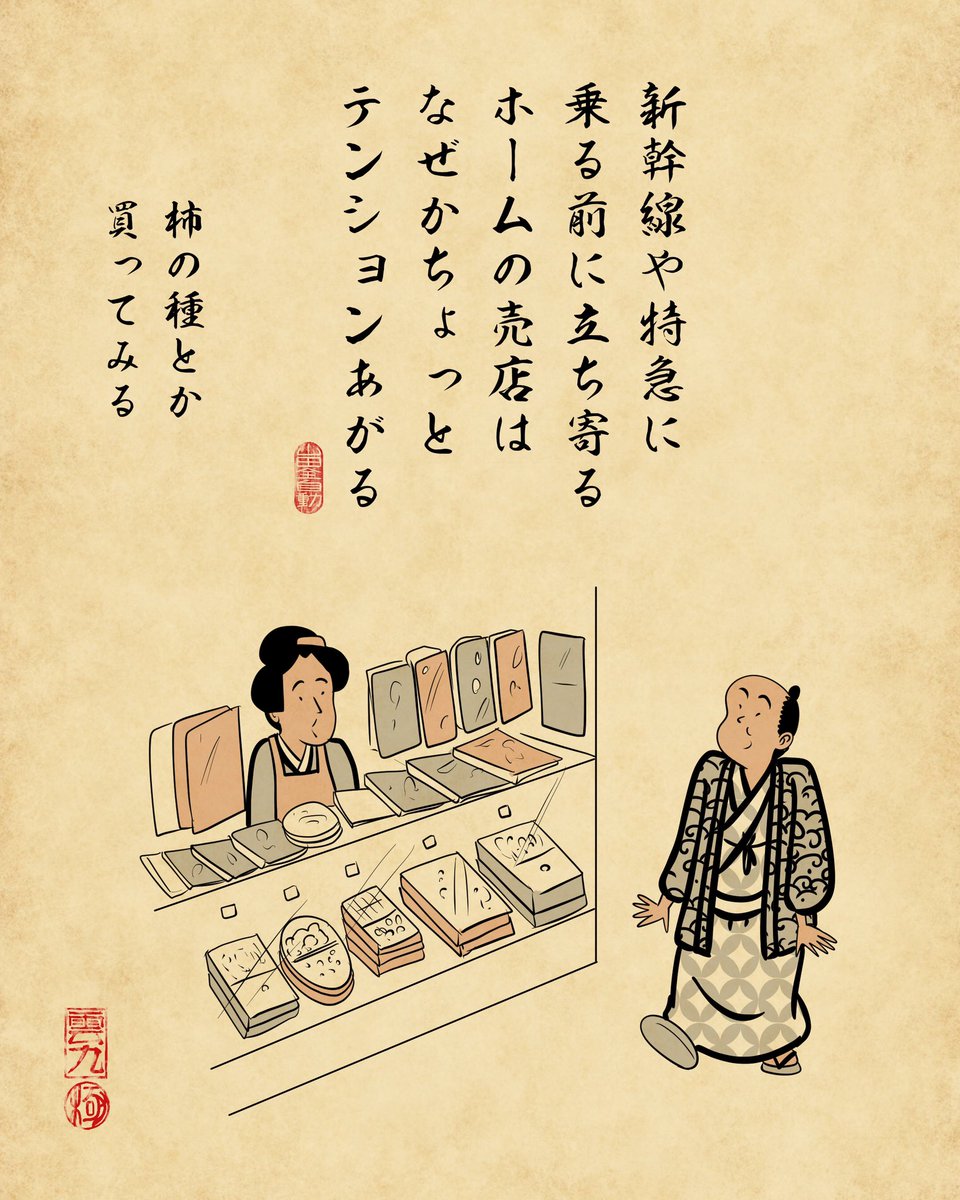 新幹線や特急に
乗る前に立ち寄る
ホームの売店は
なぜかちょっと
テンションあがる
柿の種とか
買ってみる